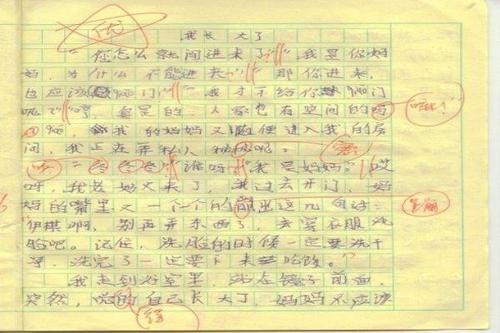 优
我长大了
"你怎么就闯进来了""我是你妈
妈,为什么不能进来""那你进来,
也应该敲门""我才不给你敲门
呢""哼,真是的,人家也有空间的吗
啊,我的妈妈又随便进入我的房
间,我正在弄私人秘密呢。
"咚咚咚""谁呀""我是妈妈""哎
呀,我老妈又来了,我过去开门,妈
妈的嘴里又一个个的蹦出这几句话:
伊琪啊,别再弄东西了,去穿衣服洗
脸吧。记住,洗脸的时候一定要洗干
净,洗完了一定要下来吃饭。"
我走到浴室里,站在镜子前面,
突然,觉的自己长大了,妈妈不应该